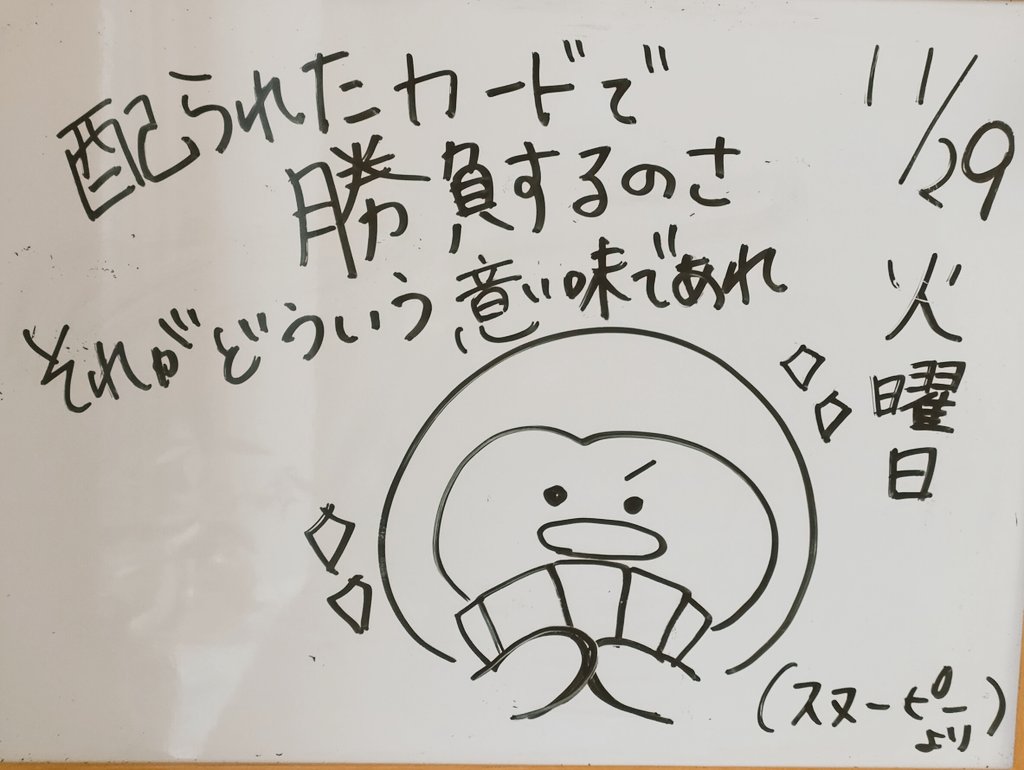 配られたカードで
勝負するのさ
それがどういう意味であれ
11/29
火曜日
(スヌーピーより)